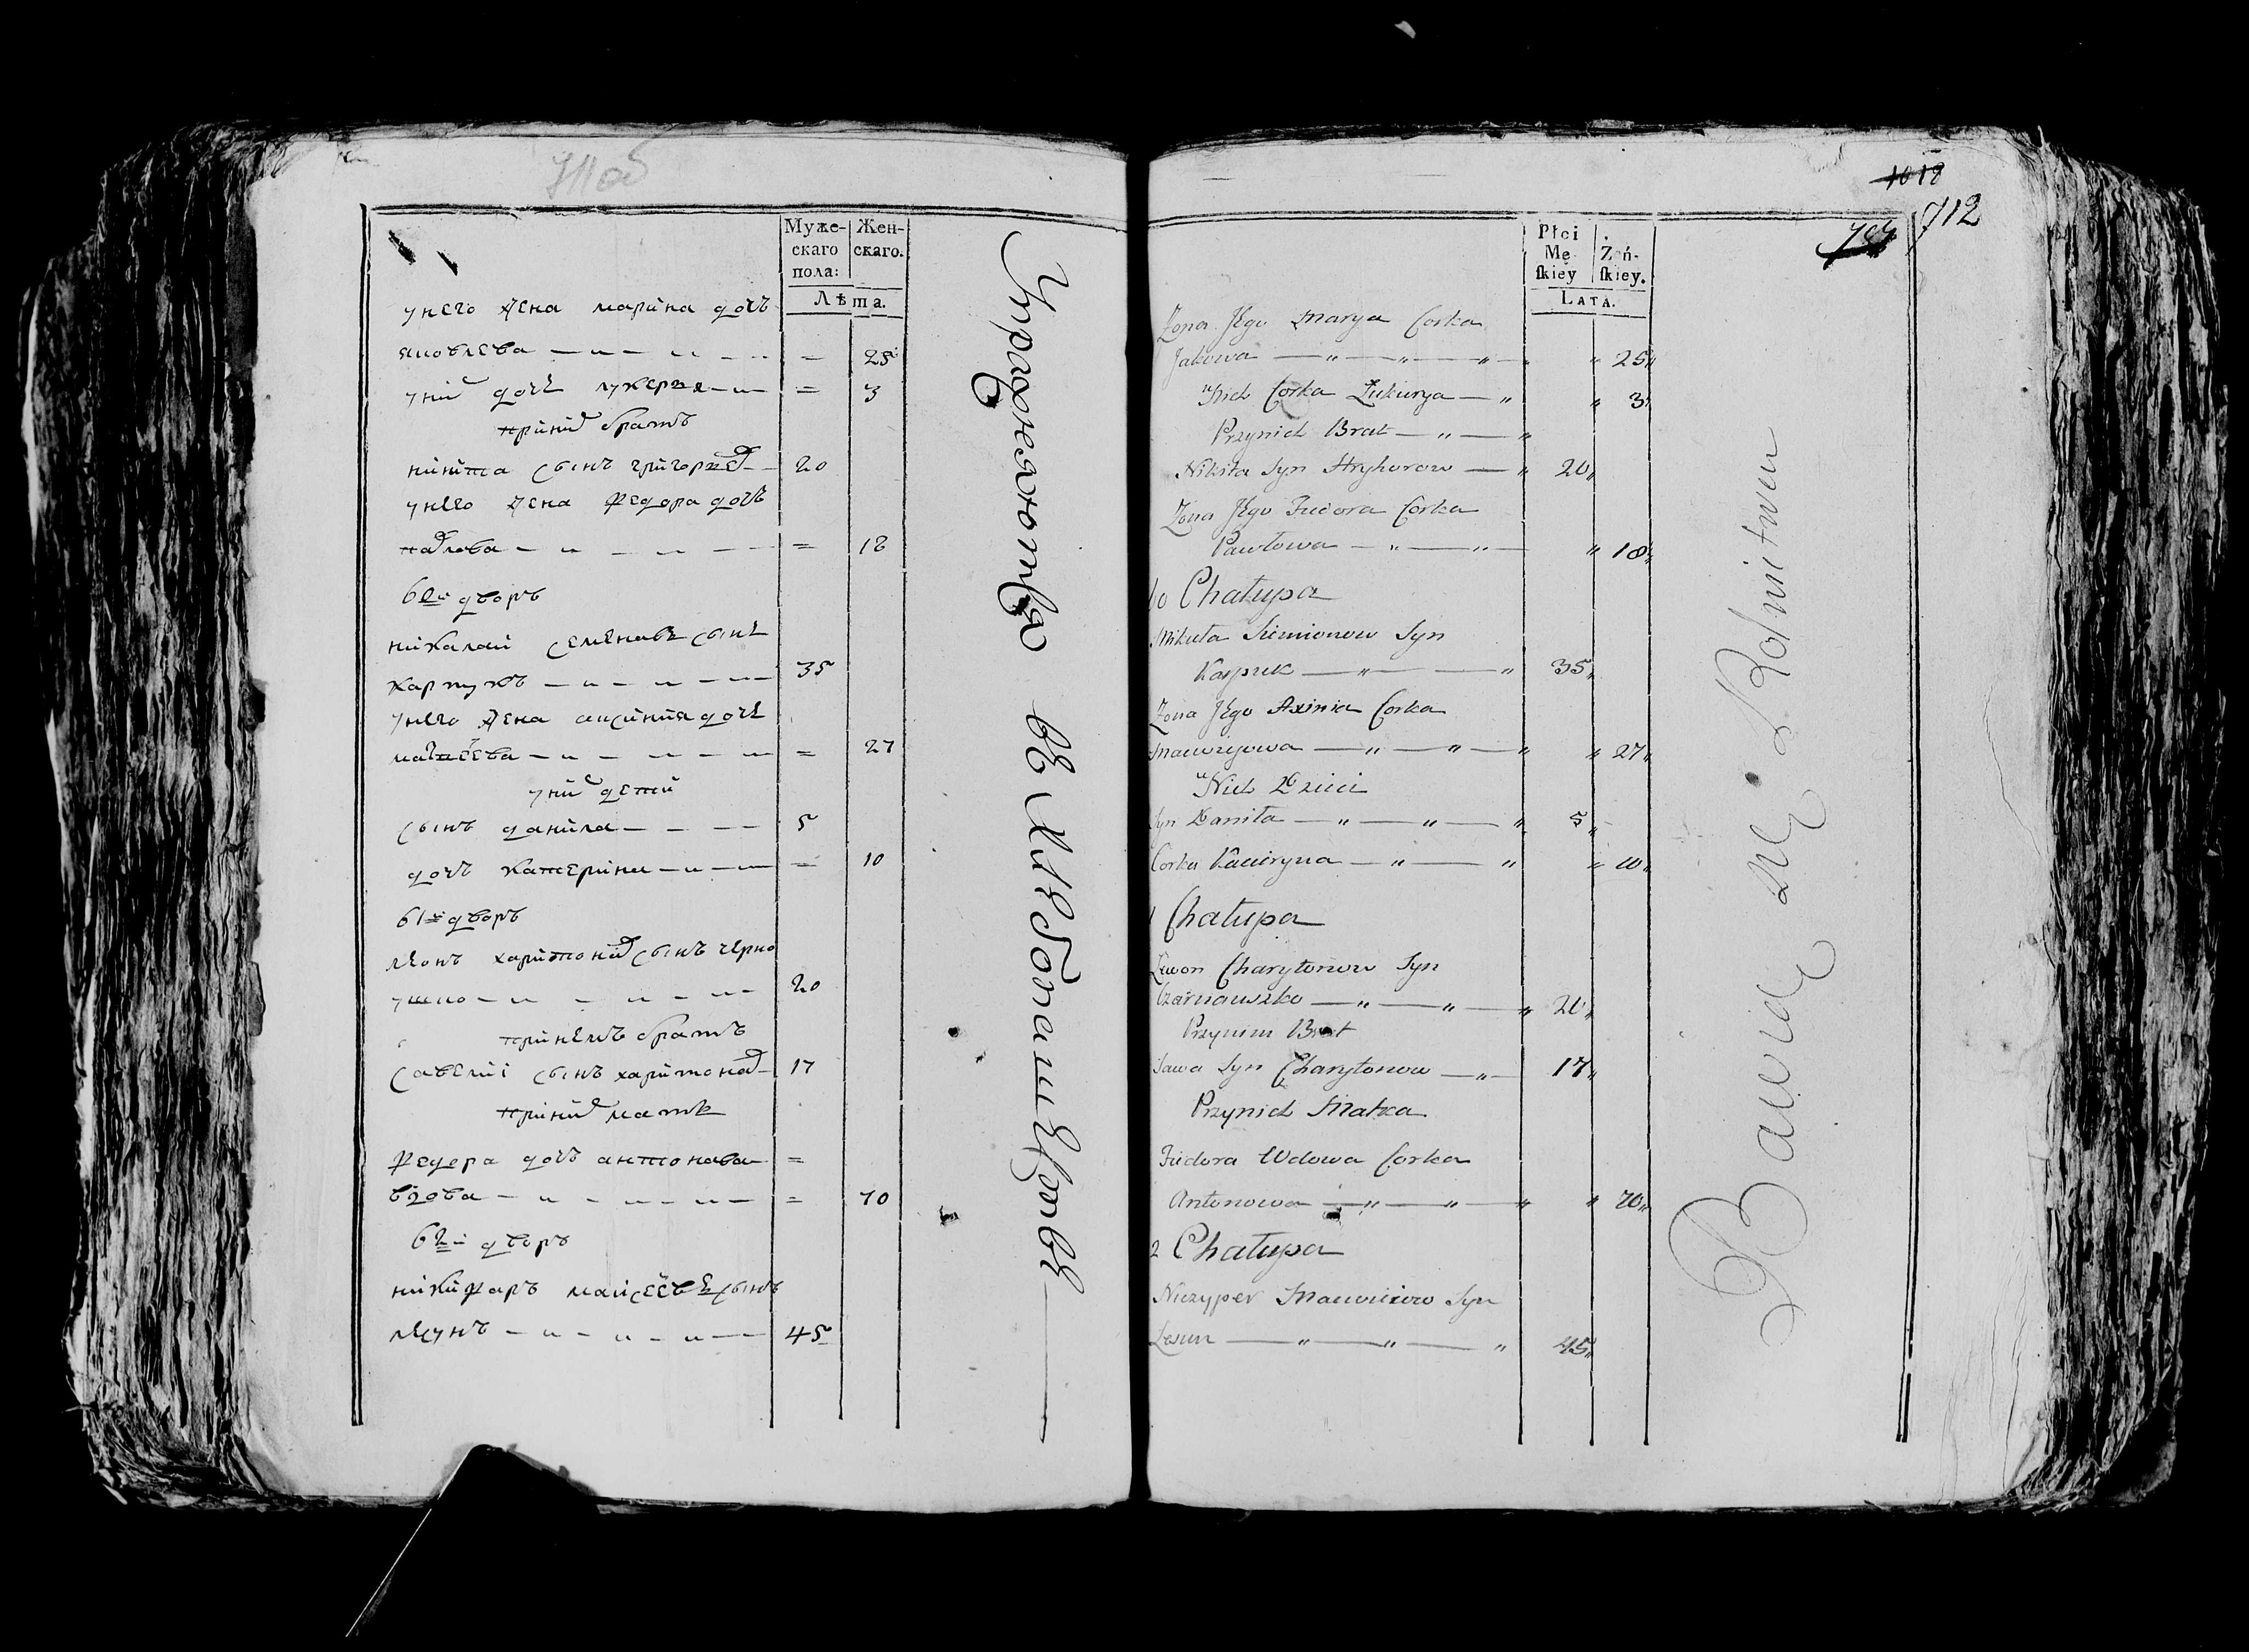 711 об
Муже-
скаго
пола:
Жен-
скаго.
Лѣта.
унего жена марина дочь
яковлева — „ — „ — = 25
уних дочь лукерья — „ — = 3
приних братъ
никита сынъ григорьев — 20
унего жена федора дочь
павлова — „ — „ — = 18
60й дворъ
никалай семенавъ сынъ
карпукъ — „ — „ — „ — 35
унего жена аксиния дочь
матвеева — „ — „ — = 27
уних дети
сынъ данила — — — 5
дочь катерина — „ — = 10
61й дворъ
леонъ харитонов сынъ черно
ушко — „ — „ — „ — 20
принемъ братъ
савелиi сынъ харитонов — 17
приних матъ
федора дочь антонава =
вдова — „ — „ — „ — = 70
62й дворъ
никифаръ маисеевъ сынъ
лесунъ — „ — „ — „ — 45
Упражняютца въ Хлебопашествѣ
1018
712
Płci
Mę
ſkiey
Żeń-
ſkiey.
Lata.
Zona Jego Marya Corka
Jakowa — „ — „ — „ — „ 25„
u Nich Corka Łukierya — „ „ 3„
Przynich Brat — „ — „
Nikita Syn Hryhorow — „ 20„
Zona Jego Fiedora Corka
Pawłowa — „ — „ — „ 18„
60 Chałupa
Mikuła Siemionow Syn
Karpuk — „ — — „ 35„
Zona Jego Axinia Corka
Maciejowa — „ — „ — „ „ 27„
u Nich Dzieci
Syn Daniła — „ — „ — „ 5„
Corka Kacieryna — „ — „ „ 10„
1 Chałupa
Lewon Charytonow Syn
Czarnauszko — „ — „ — „ 20„
Przynim Brat
Sawa Syn Charytonow — „ — 17„
Przynich Matka
Fiedora Wdowa Corka
Antonowa — „ — „ — „ „ 70„
2 Chałupa
Niczyper Syn
Lesun — „ — „ — „ 45„
Bawią się Rolnictwem